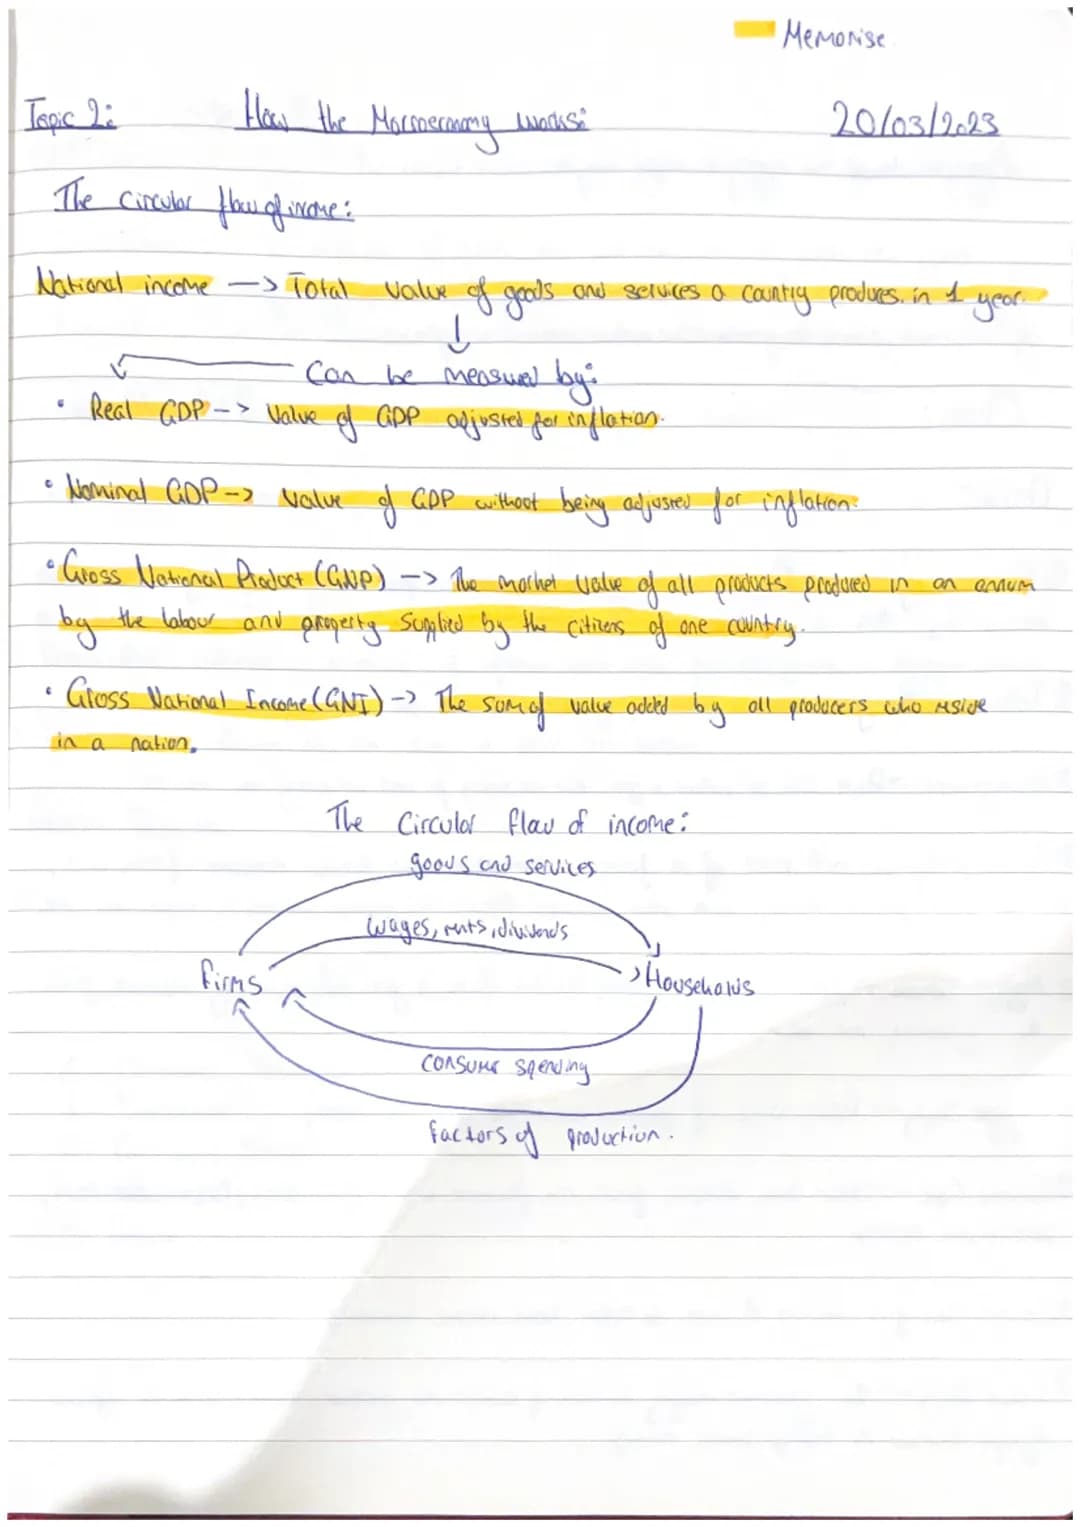 Memorise
Topic 2: How the Macroeconomy works: 20/03/2023
The Circular flow of income:
National income -> Total value of goods and services a country produces. in 1 year.
↓
Can be measured by:
• Real GDP -> Value of GDP adjusted for inflation.
• Nominal GDP -> Value of GDP without being adjusted for inflation.
• Gross National Product (GNP) -> The market value of all products produced in an annum
by the labour and property supplied by the citizens of one country.
• Gross National Income (GNI) -> The sum of value added by all producers who reside
in a nation.
The Circular flow of income:
goods and services
wages, rents, dividends
firms
> Households
consumer spending
factors of production.